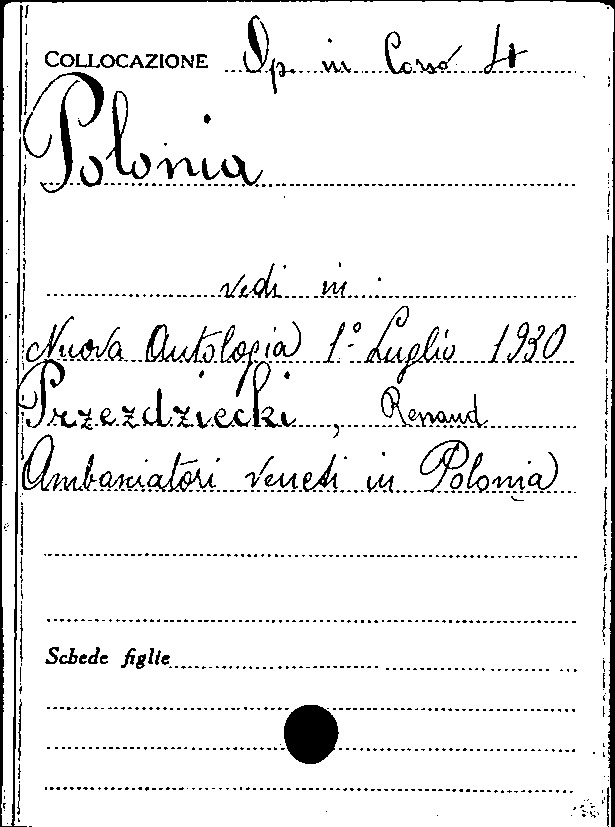 COLLOCAZIONE Op. in Corso 4
Polonia
vedi in:
Nuova Antologia 1º Luglio 1930
Przezdziecki, Renaud
Ambasciatori veneti in Polonia
Schede figlie